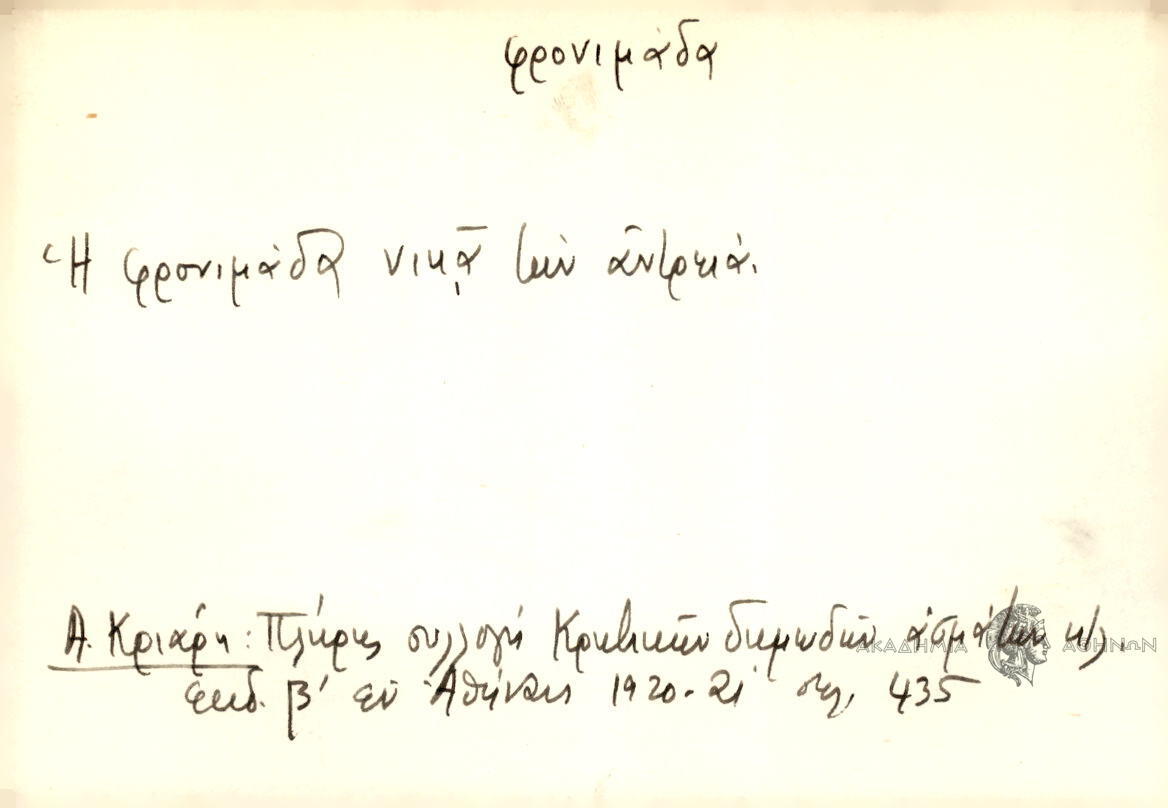 φρονιμάδα
Ἡ φρονιμάδα νικᾷ τὴν ἀντρειά.
Α. Κριάρη: Πλήρης συλλογή Κρητικῶν δημωδῶν ᾀσμάτων κ/λ.
ἔκδ. β' ἐν Ἀθήναις 1920-21 σελ. 435
ΑΚΑΔΗΜΙΑ ΑΘΗΝΩΝ